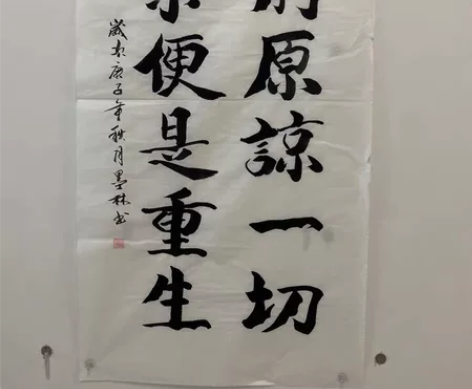 前原諒一切
來便是重生
歲在庚子年秋月墨林书